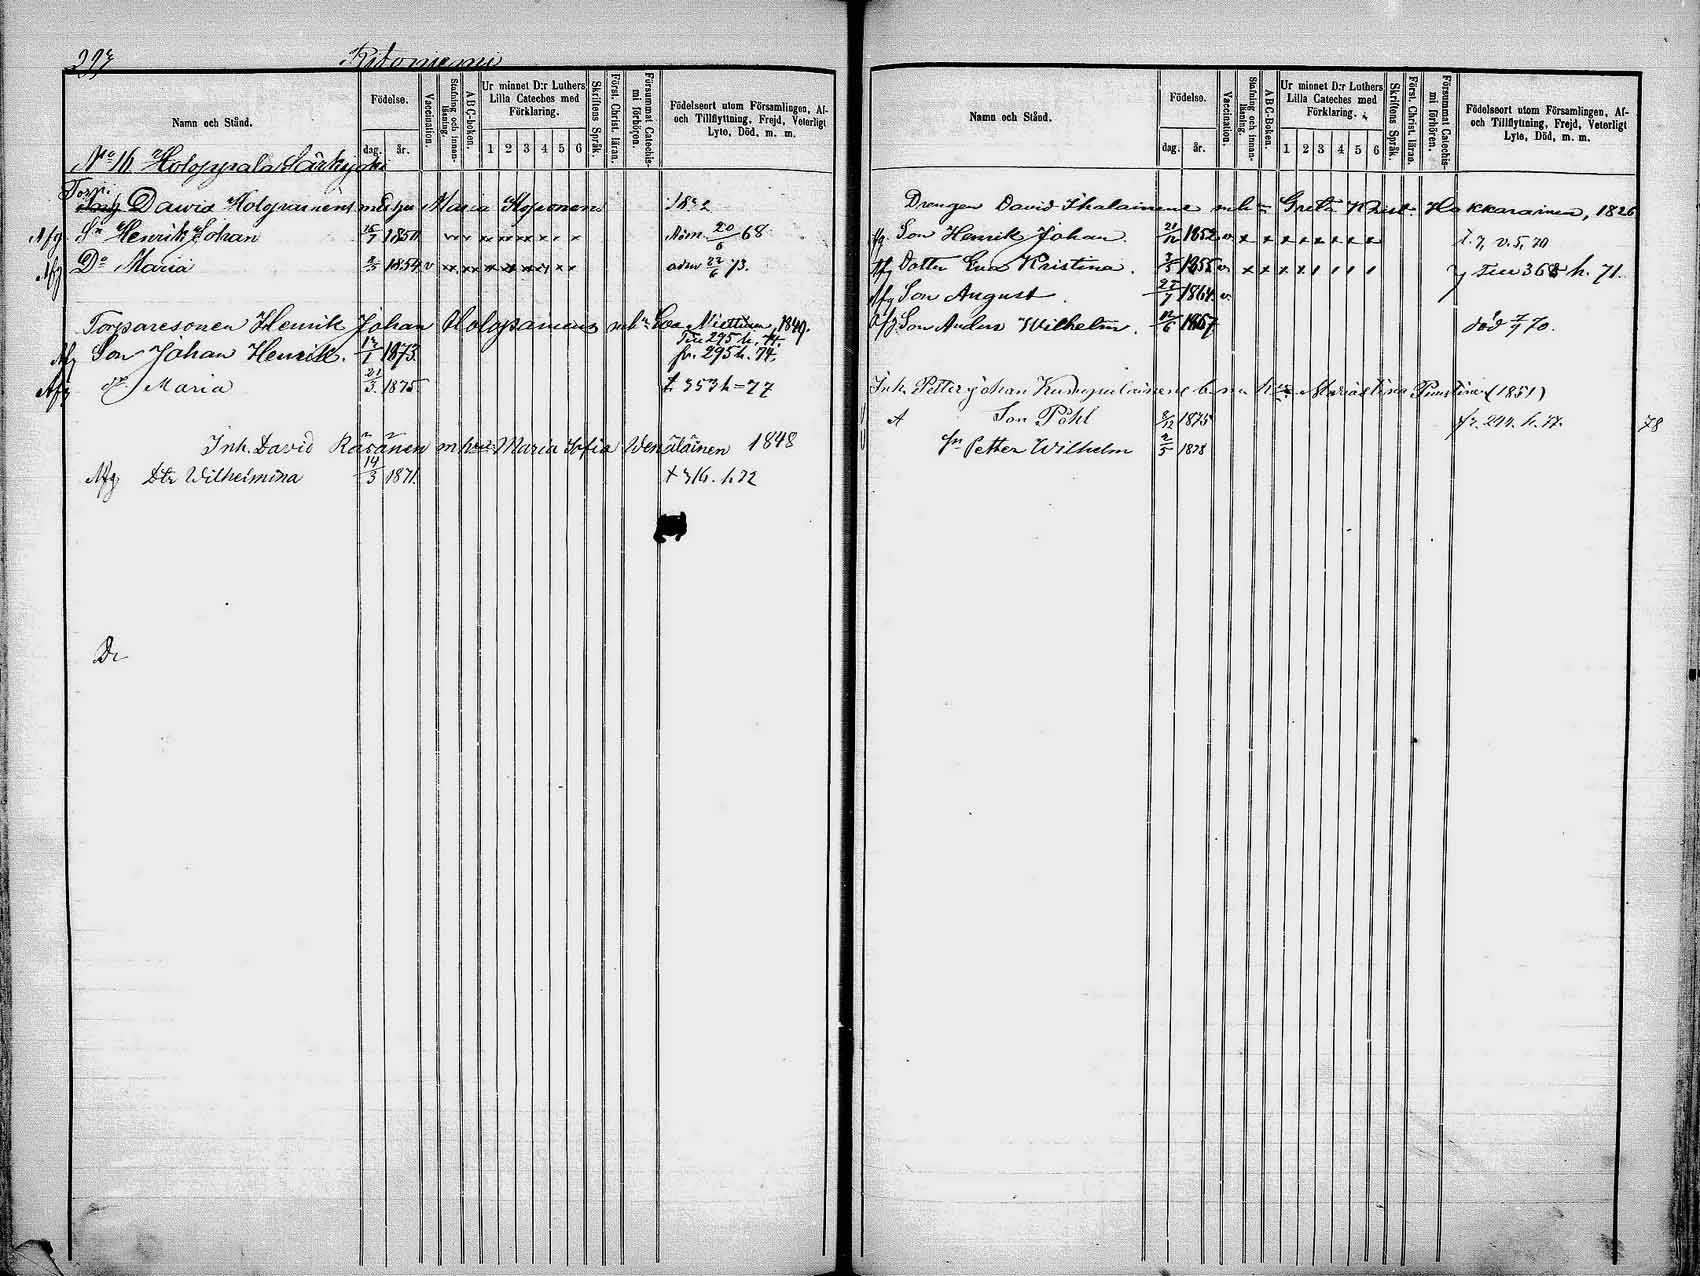 297
Ritoniemi
Namn och Stånd.
Födelse.
dag. år.
Vaccination.
Stafning och innan-läsning.
ABC-boken.
Ur minnet D:r Luthers Lilla Cateches med Förklaring.
1 2 3 4 5 6
Skriftens Språk.
Först. Christ. läran.
Försummat Catechis-mi förhören.
Födelseort utom Församlingen, Af- och Tillflyttning, Frejd, Veterligt Lyte, Död, m. m.
No 16 Holoppala
Torp. David Holopainens Maria Koponen No 2
Afg Sn Henrik Johan 1850 x x x x x x x x Adm. 20/6 68
Afg Do Maria 2/5 1854 v x x x x x x x x adm 22/6 73.
Torparesonen Henrik Johan Holopainens m h Eva Miettinen 1849.
Till 295 h. 74.
Afg Son Johan Henrik. 12/1 1873. fr. 295 h. 74.
Afg Maria 21/3 1875 t. 353 h=77
Inh. David Räsänen m h Maria Sofia Wenäläinen 1848
Afg Dtr Wilhelmina 14/3 1871. + 316. h. 72
Dr
Namn och Stånd.
Födelse.
dag. år.
Vaccination.
Stafning och innan-läsning.
ABC-boken.
Ur minnet D:r Luthers Lilla Cateches med Förklaring.
1 2 3 4 5 6
Skriftens Språk.
Först. Christ. läran.
Försummat Catechis-mi förhören.
Födelseort utom Församlingen, Af- och Tillflyttning, Frejd, Veterligt Lyte, Död, m. m.
Drengen David Ihalainens m h Greta Krist. Hakkarainen, 1826
Afg. Son Henrik Johan. 21/12 1852 v. x x x x x x x x
Afg Dotter Eva Kristina. 3/5 1855 v. x x x x 1 1 1 1 Till 368 h. 71.
Afg Son August. 27/7 1864 v.
Afg. Son Anders Wilhelm. 12/6 1867 död 2/7 70.
Inh. Petter Johan b. m. h. (1851)
A Son Pöhl 8/12 1875 fr. 294. h. 77. 78
Sn Petter Wilhelm 2/5 1878